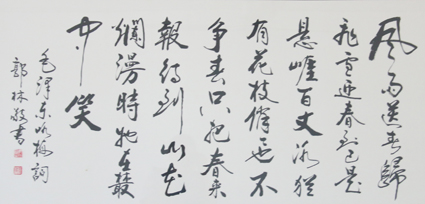 風雨送春歸
飛雪迎春到已是
懸崖百丈冰猶
有花枝俏也不
争春只把春來
報待到山花
爛漫時她在叢
中笑
毛澤東咏梅詞
郭林敬書